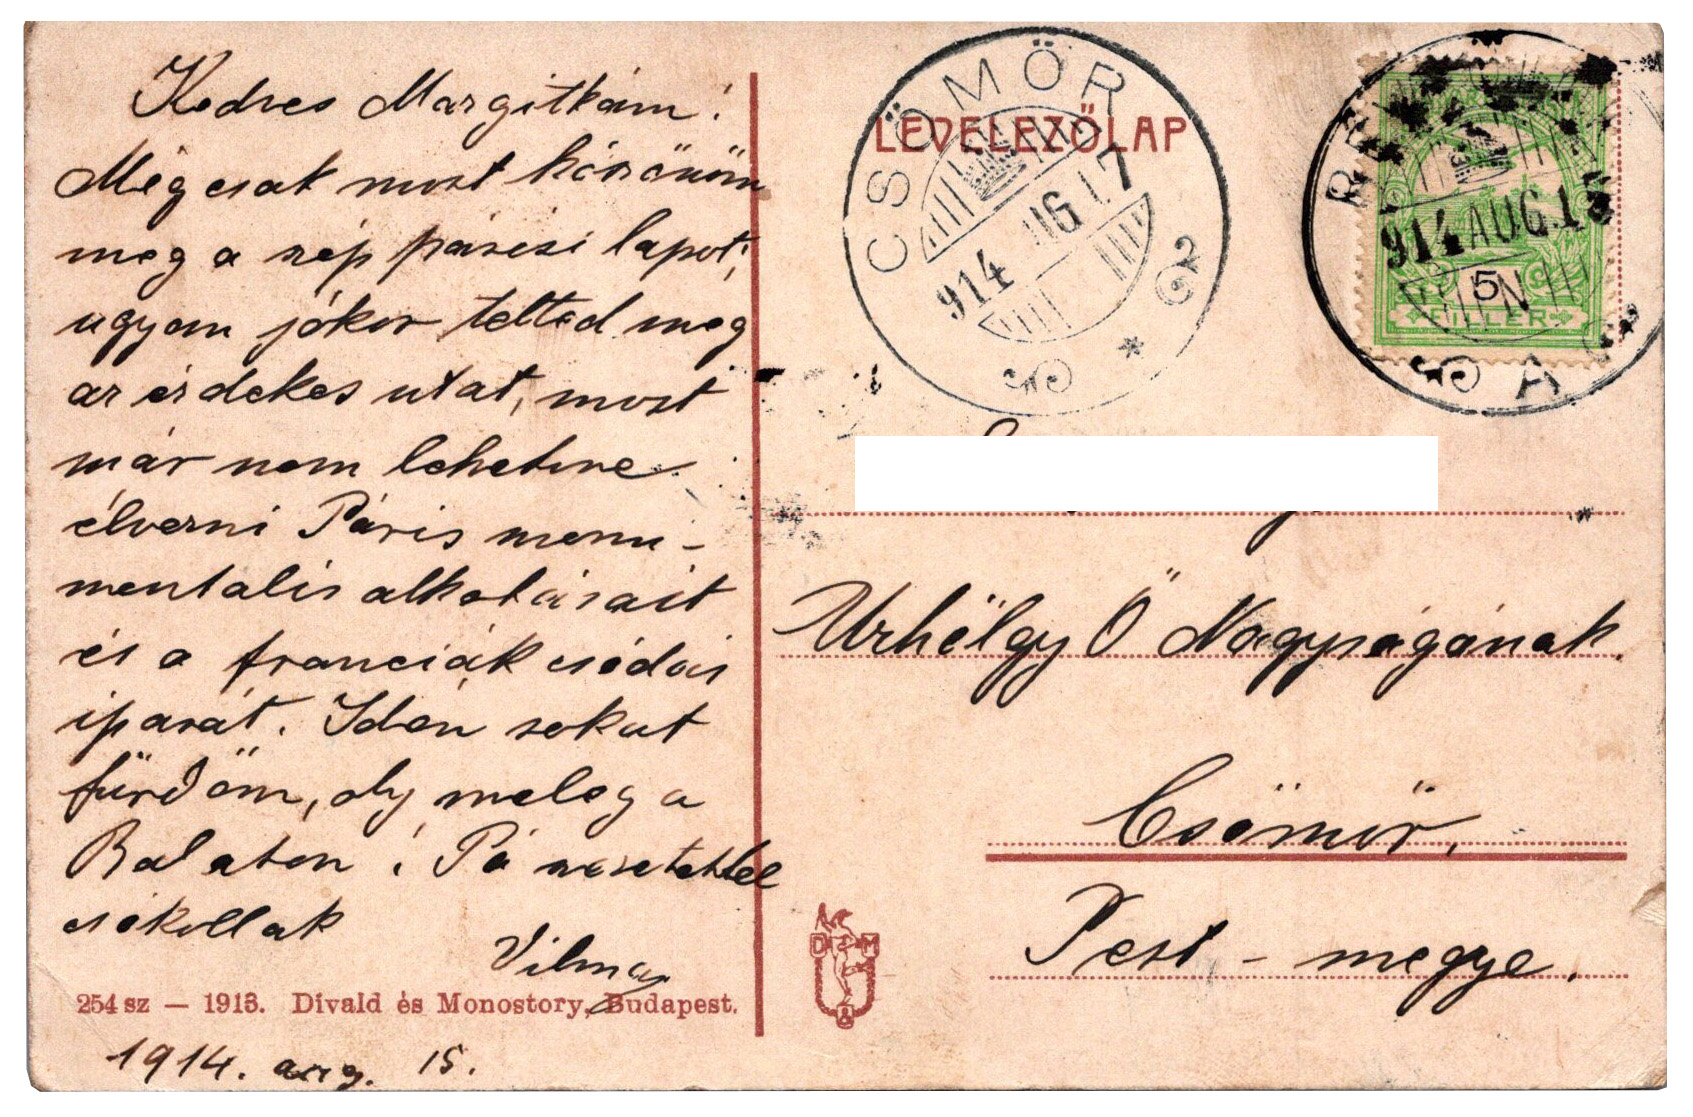 Kedves Margitkám!
Még csak most köszönöm
meg a szép párisi lapot,
ugyan jókor tetted meg
az érdekes utat, most
már nem lehetne
élvezni Páris monu-
mentalis alkotásait
és a franciák csodás
iparát. Idén sokat
fürdöm, oly meleg a
Balaton! Pá szeretettel
csókollak
Vilma
254 sz — 1913. Divald és Monostory, Budapest.
1914. aug. 15.
LEVELEZŐLAP
CSÖMÖR
914 AUG 17
914 AUG. 1
5
FILLÉR
Urhölgy Ő Nagyságának.
Csömör.
Pest - megye.
D M